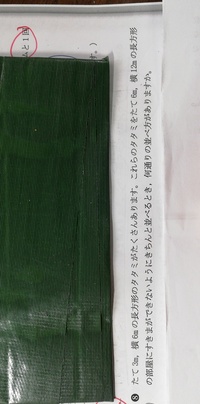 8 たて3m、横6mの長方形のタタミがたくさんあります。これらのタタミをたて6m、横12mの長方形
の部屋にすきまができないようにきちんと並べるとき、何通りの並べ方がありますか。
ムと1回
す。)